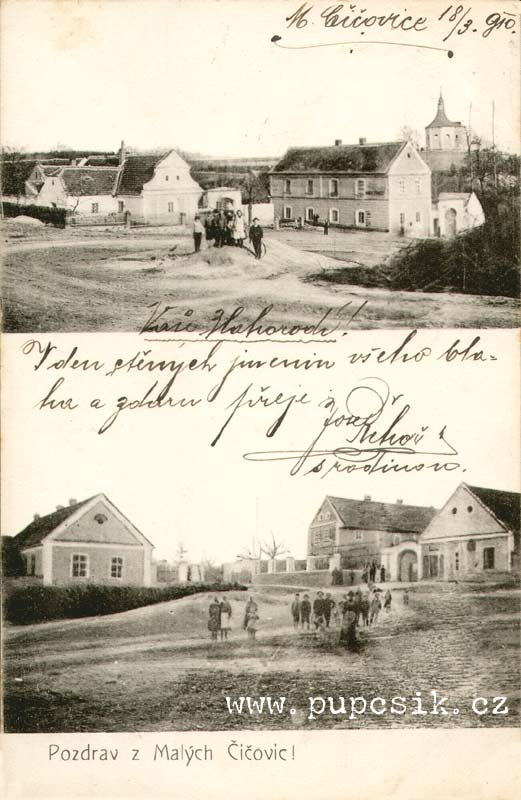 M. Čičovice 18/3. 910.
Vaše Blahorodí!
V den ctěných jmenin všeho bla-
ha a zdaru přeje
Josef
s rodinou.
www.pupcsik.cz
Pozdrav z Malých Čičovic!